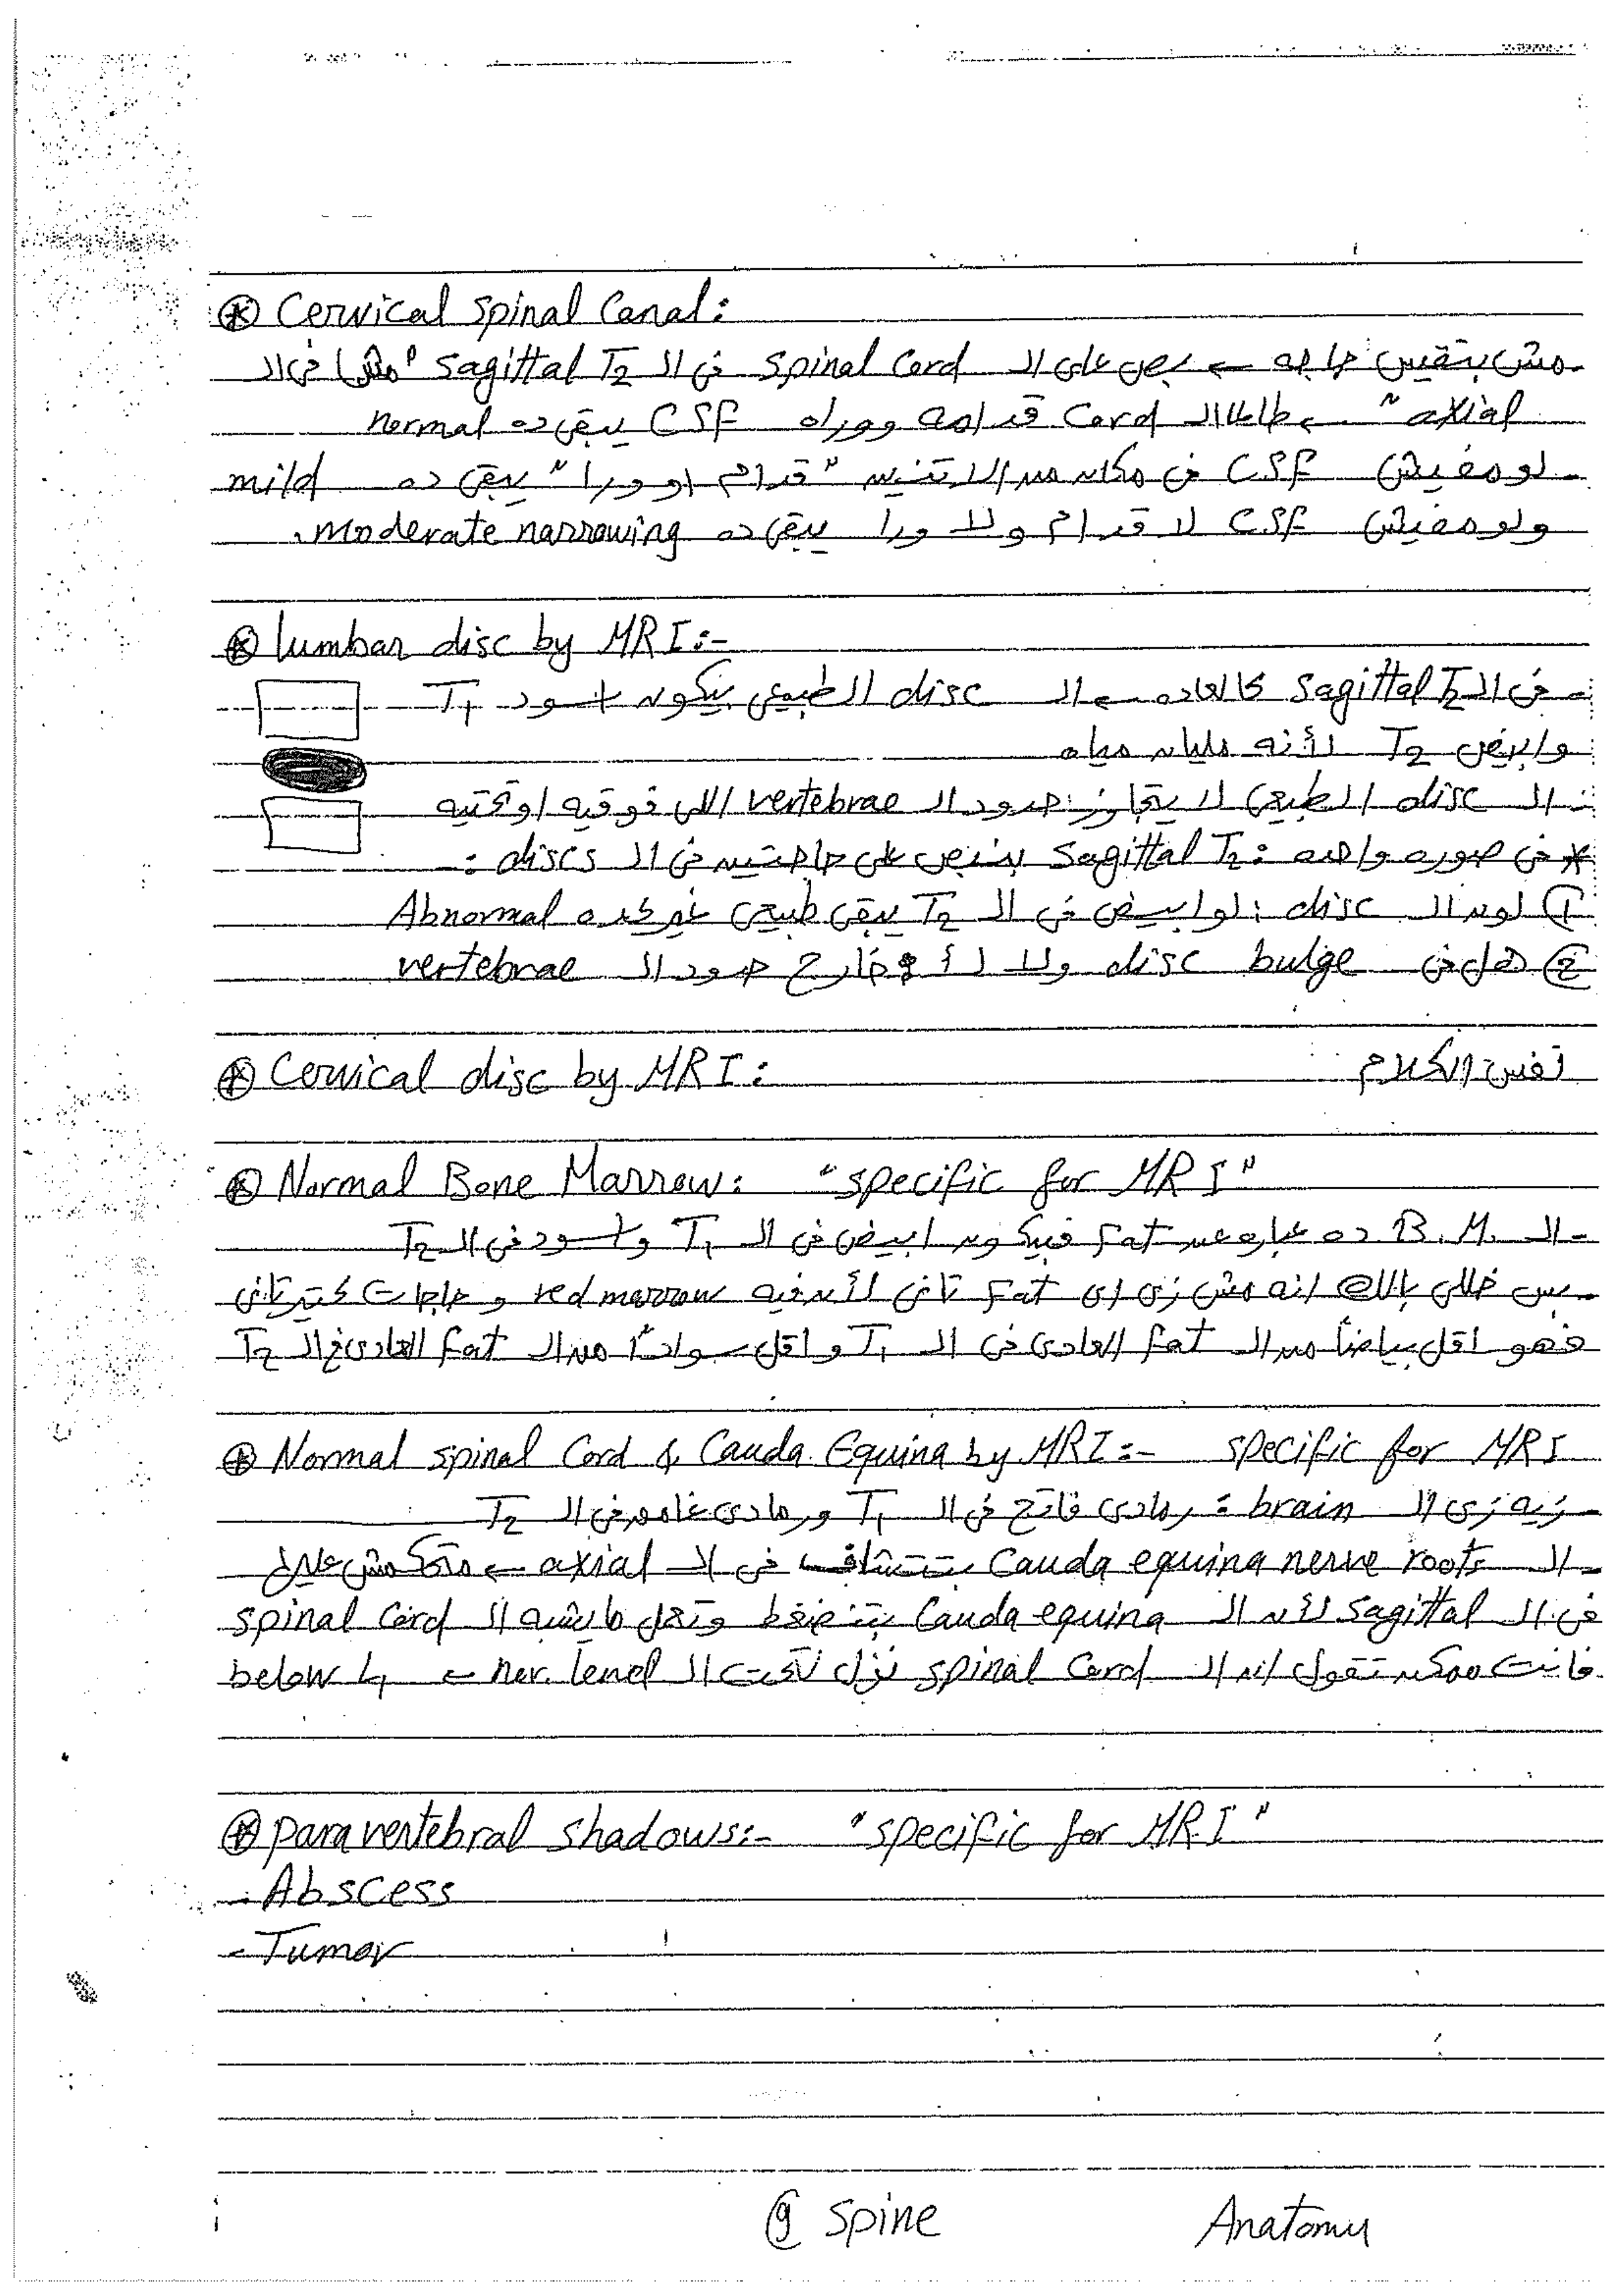 ⊛ Cervical Spinal Canal:
مش بتقيس حاجه ← بص على ال Spinal Cord فى ال Sagittal T2 "مش فى ال
axial" ← طالما ال Cord قدامه ووراه CSF يبقى ده normal
- لو مفيش CSF فى مكان من الاتنين "قدام او ورا" يبقى ده mild
ولو مفيش CSF لا قدام ولا ورا يبقى ده moderate narrowing.
⊛ lumbar disc by MRI:-
- فى ال Sagittal T2 كالعاده ← ال disc الطبيعى بيكون اسود T1
وابيض T2 لأنه مليان مياه
- ال disc الطبيعى لا يتجاوز حدود ال vertebrae اللى فوقيه او تحتيه
* فى صوره واحده: Sagittal T2 بنبص على حاجتين فى ال discs:
① لون ال disc: لو ابيض فى ال T2 يبقى طبيعى غير كده Abnormal
② هل فى disc bulge ولا لأ خارج حدود ال vertebrae
⊛ Cervical disc by MRI: نفس الكلام
⊛ Normal Bone Marrow: "specific for MRI"
- ال B.M. ده عباره عن Fat فبيكون ابيض فى ال T1 واسود فى ال T2
- بس خلى بالك انه مش زى اى Fat تانى لأن فيه red marrow وحاجات كتير تانى
فهو اقل بياضاً من ال Fat العادى فى ال T1 و اقل سواداً من ال Fat العادى فى ال T2
⊛ Normal spinal Cord & Cauda Equina by MRI:- specific for MRI
- زيه زى ال brain: رمادى فاتح فى ال T1 ورمادى غامق فى ال T2
- ال Cauda equina nerve roots بتتشاف فى ال axial ← متحكمش عليها
فى ال Sagittal لأن ال Cauda equina بتتضغط وتعمل ما يشبه ال spinal Cord
فانت ممكن تقول ان ال spinal Cord نزل تحت ال nor. level ← below L1
⊛ paravertebral shadows:- "specific for MRI"
- Abscess
- Tumor
9 Spine Anatomy